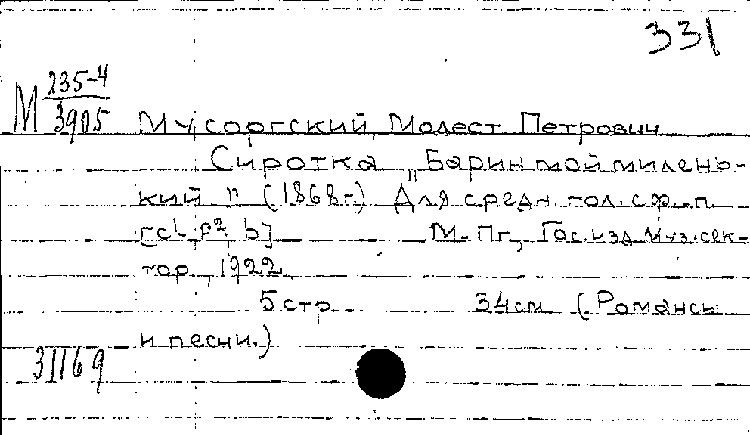 331
М 235-4
3905
Мусоргский, Модест Петрович
Сиротка „Барин мой милень-
кий" (1868г.) Для средн. гол. с ф.-п.
[c¹ f² b] М.-Пг., Гос. изд. Муз. сек-
тор, 1922.
5 стр. 34 см (Романсы
и песни.)
31169